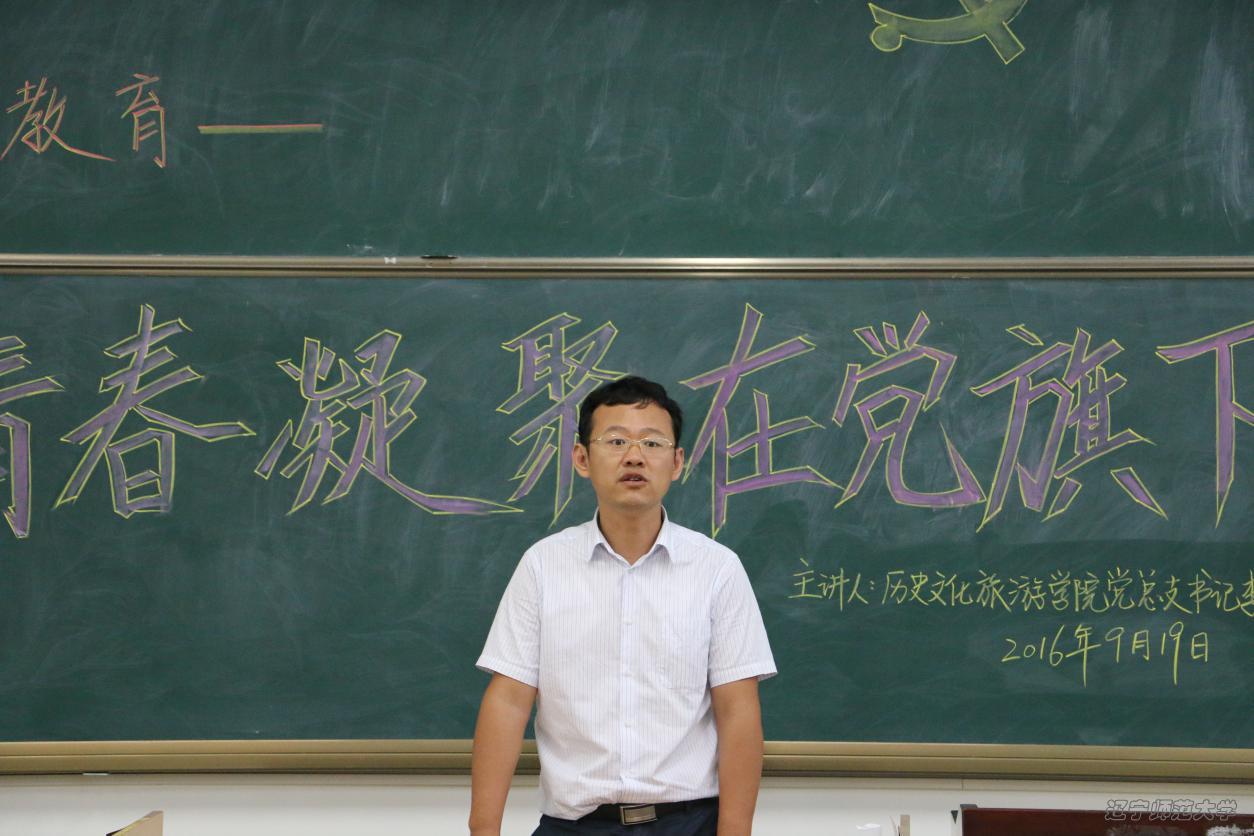 教育——
青春凝聚在党旗下
主讲人:历史文化旅游学院党总支书记李
2016年9月19日
辽宁师范大学